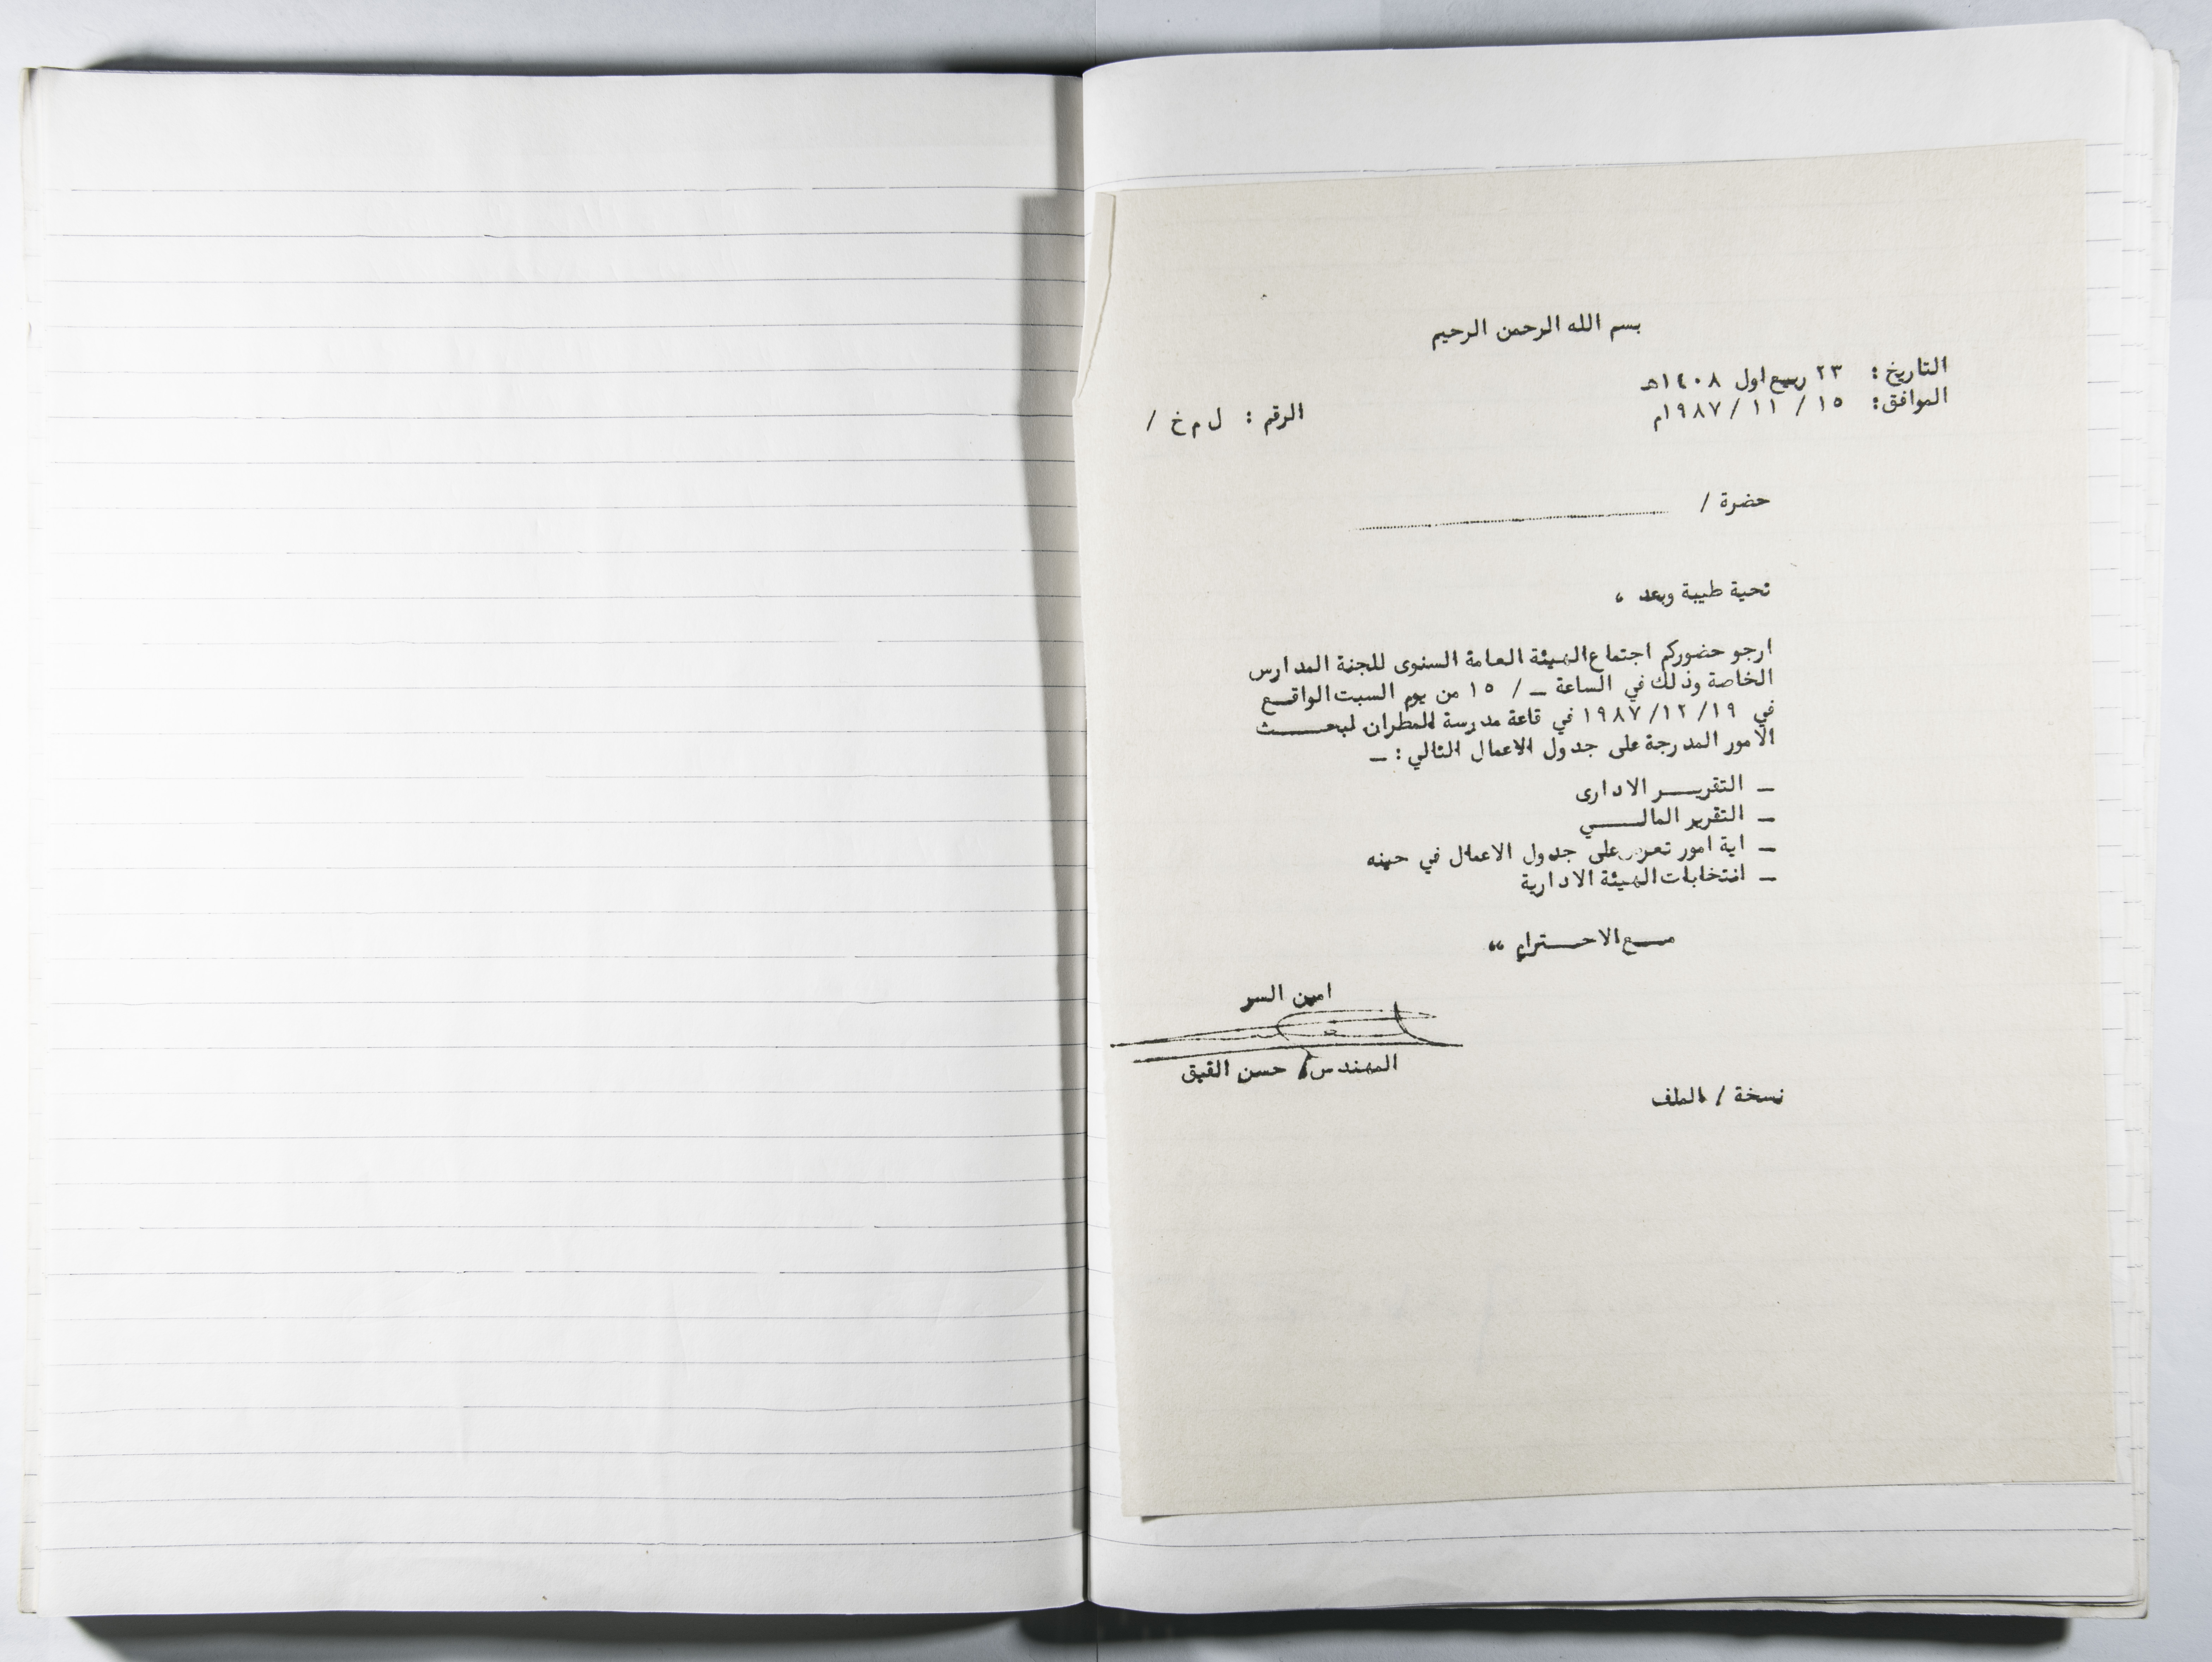 بسم الله الرحمن الرحيم
التاريخ : ٢٣ ربيع اول ١٤٠٨هـ
الموافق : ١٥ / ١١ / ١٩٨٧م
الرقم : ل م خ /
حضرة / ..............................
تحية طيبة وبعد ،
ارجو حضوركم اجتماع الهيئة العامة السنوى للجنة المدارس
الخاصة وذلك في الساعة ـ / ١٥ من يوم السبت الواقـــع
في ١٩ /١٢ /١٩٨٧ في قاعة مدرسة المطران لبحـــــث
الامور المدرجة على جدول الاعمال التالي : ـ
ـ التقريـــر الادارى
ـ التقرير المالـــــي
ـ اية امور تعرض على جدول الاعمال في حينه
ـ انتخابات الهيئة الادارية
مـــع الاحـــترام ،،
امين السر
المهندس / حسن القيق
نسخة / الملف